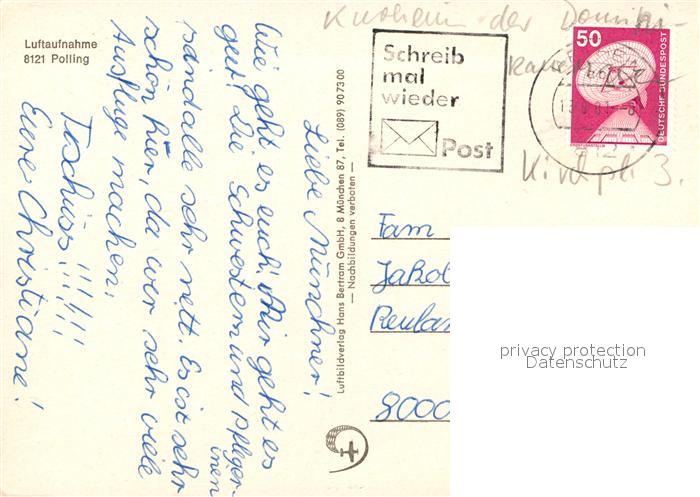 Luftaufnahme
8121 Polling
Liebe Münchner!
Wie geht es euch! Mir geht es
gut! Die Schwestern und Pfleger-
innen
sand alle sehr nett. Es ist sehr
schön hier, da wir sehr viele
Ausflüge machen.
Tschüss!!!!!!
Eure Christiane!
Luftbildverlag Hans Bertram GmbH, 8 München 87, Tel. (089) 90 73 00
— Nachbildungen verboten —
Kurheim der
Schreib
mal
wieder
Post
50
DEUTSCHE BUNDESPOST
3.
Fam
Jakob
8000
privacy protection
Datenschutz